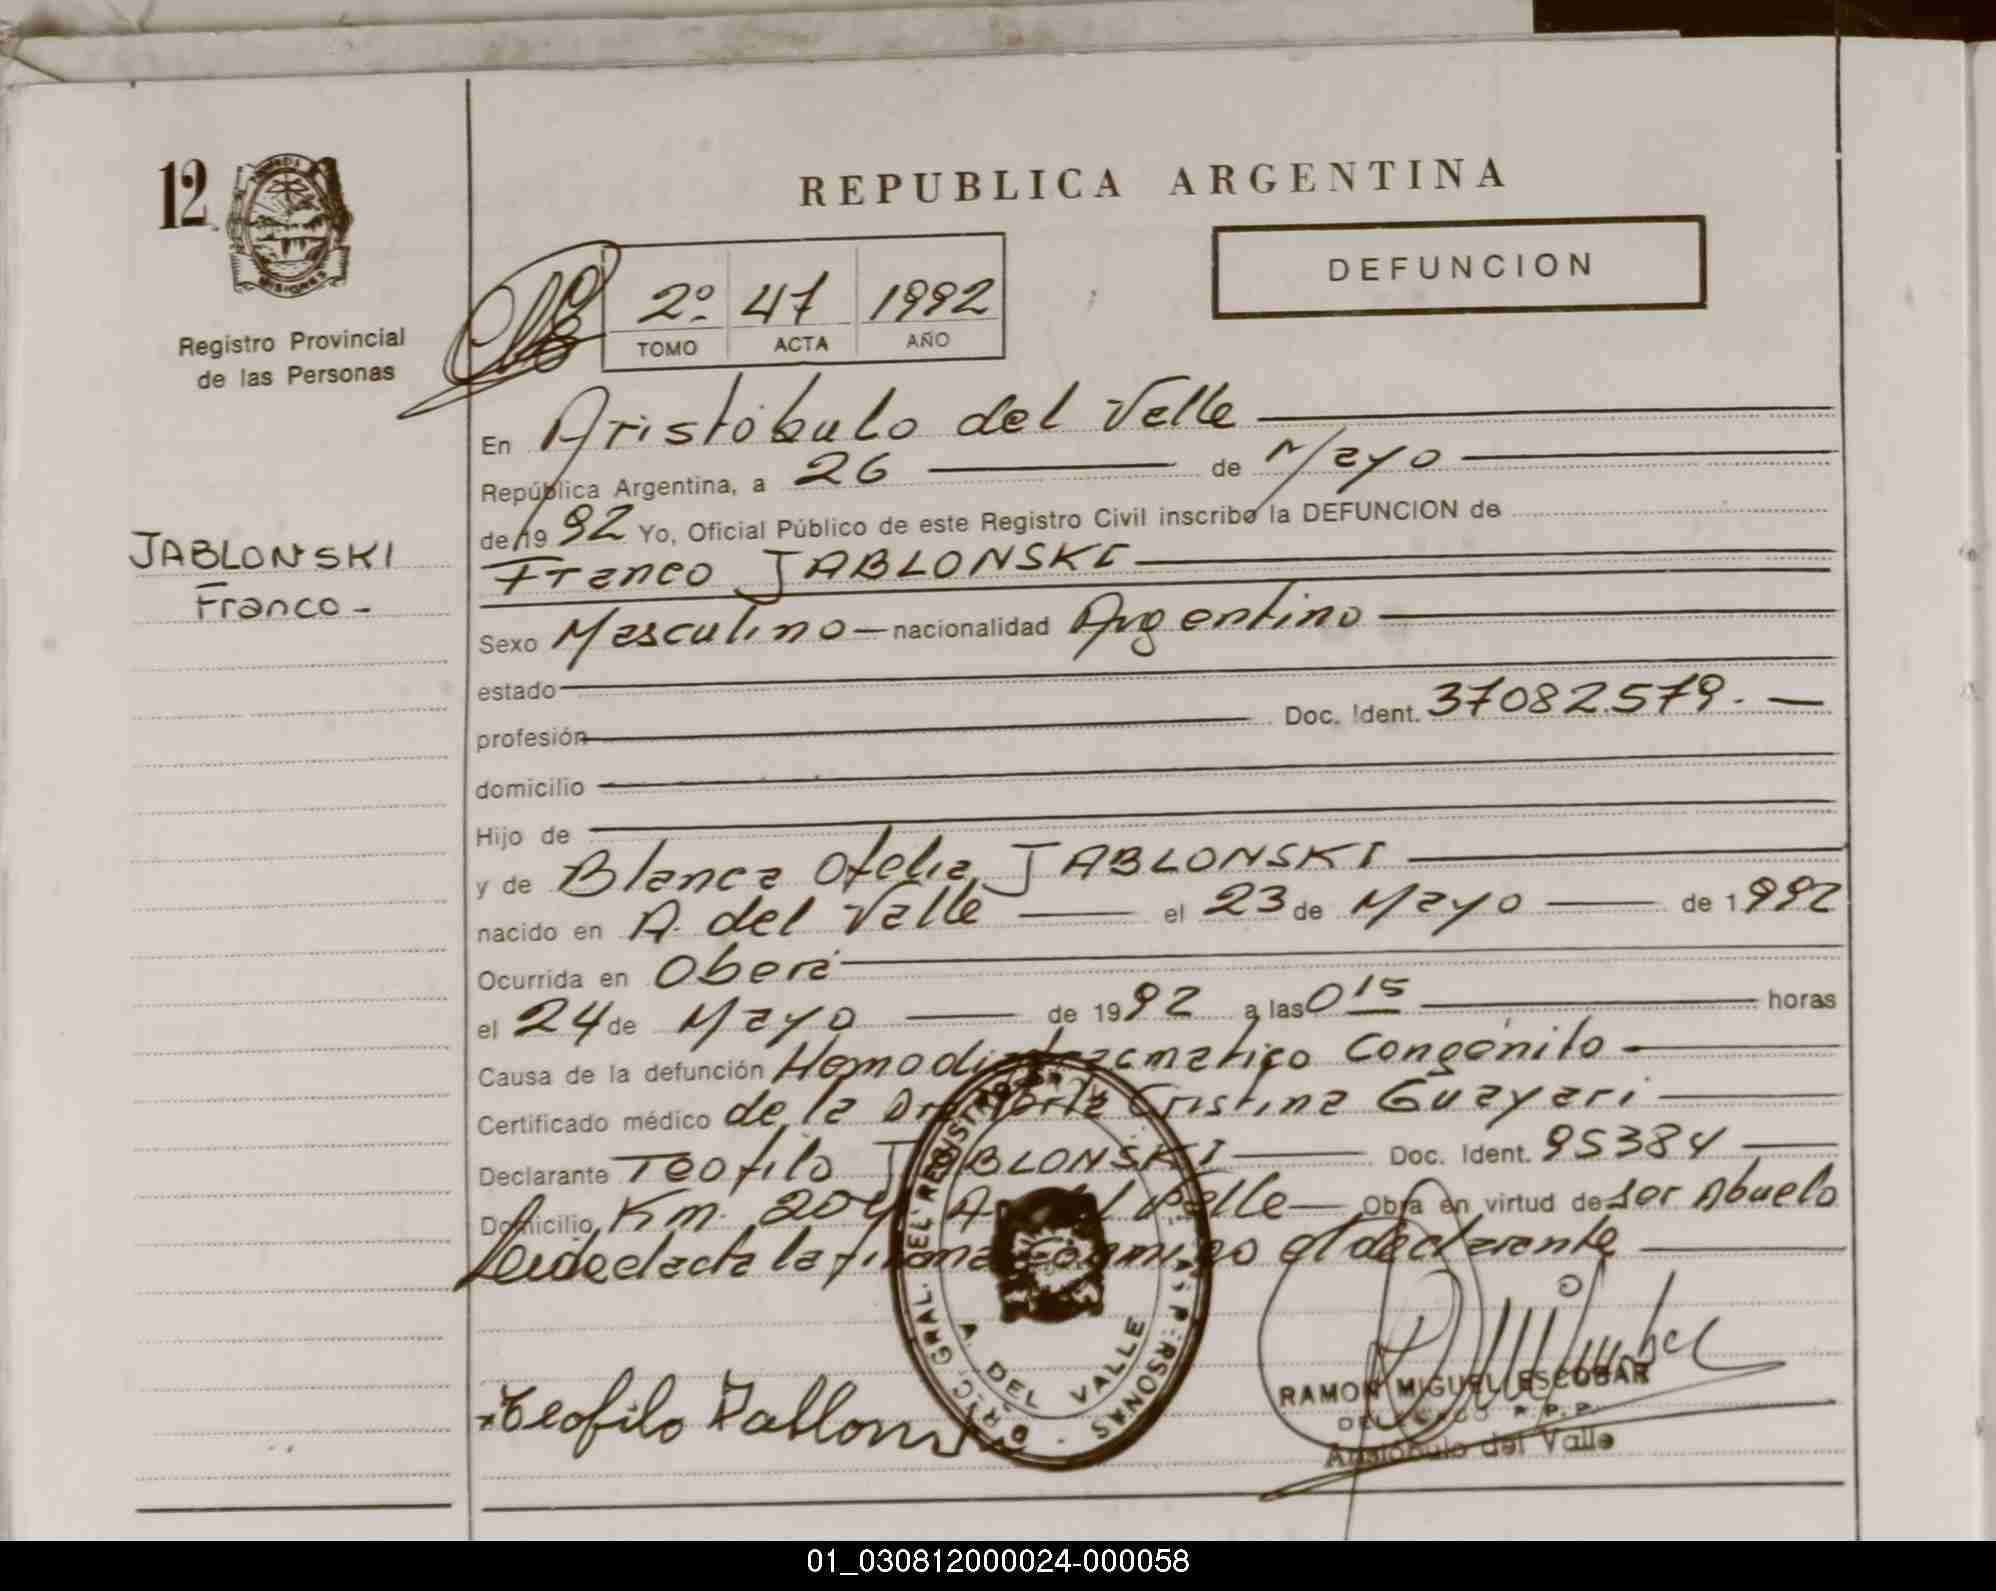 12
MISIONES
Registro Provincial
de las Personas
REPUBLICA ARGENTINA
DEFUNCION
2º 47 1992
TOMO ACTA AÑO
JABLONSKI
Franco -
En Aristóbulo del Valle
República Argentina, a 26 de Mayo
de 19 92 Yo, Oficial Público de este Registro Civil inscribo la DEFUNCION de
Franco JABLONSKI
Sexo Masculino nacionalidad Argentino
estado
profesión Doc. Ident. 37082.579.-
domicilio
Hijo de
y de Blanca Ofelia JABLONSKI
nacido en A. del Valle el 23 de Mayo de 1992
Ocurrida en Oberá
el 24 de Mayo de 1992 a las 0 15 horas
Causa de la defunción Congénito
Certificado médico de la Dra Cristina Guayari
Declarante Teofilo JABLONSKI Doc. Ident. 95384
Domicilio Km. 204 A. del Valle Obra en virtud de ser Abuelo
Leida el acta la firma conmigo el declarante
Teofilo Jablonski
DEL REGISTRO
PERSONAS
GRAL.
A. DEL VALLE
RAMON MIGUEL ESCOBAR
DELEGADO R.P.P.
Aristóbulo del Valle
01_030812000024-000058